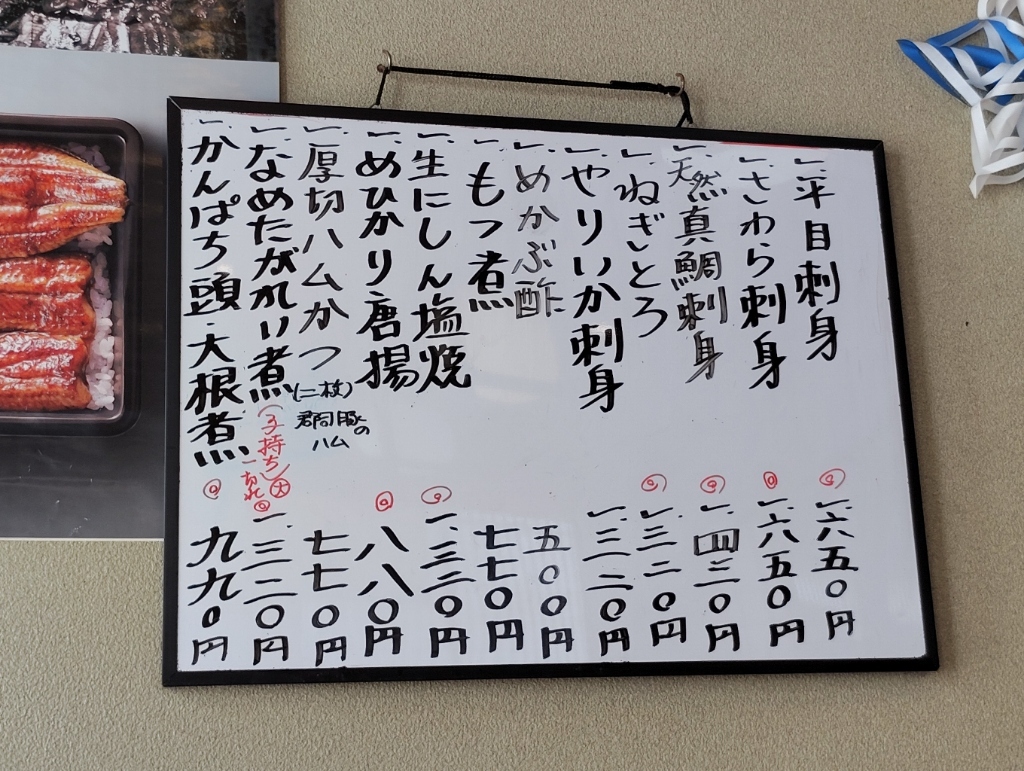 一、平目刺身 一、六五〇円
一、さわら刺身 一、六五〇円
一、天然真鯛刺身 一、四二〇円
一、ねぎとろ 一、三二〇円
一、やりいか刺身 一、三二〇円
一、めかぶ酢 五〇〇円
一、もつ煮 七七〇円
一、生にしん塩焼 一、三二〇円
一、めひかり唐揚 八八〇円
一、厚切ハムかつ(二枚) 七七〇円
郡司豚の
ハム
一、なめたがれい煮(子持ち)大 一、三二〇円
一切れ
一、かんぱち頭・大根煮 九九〇円